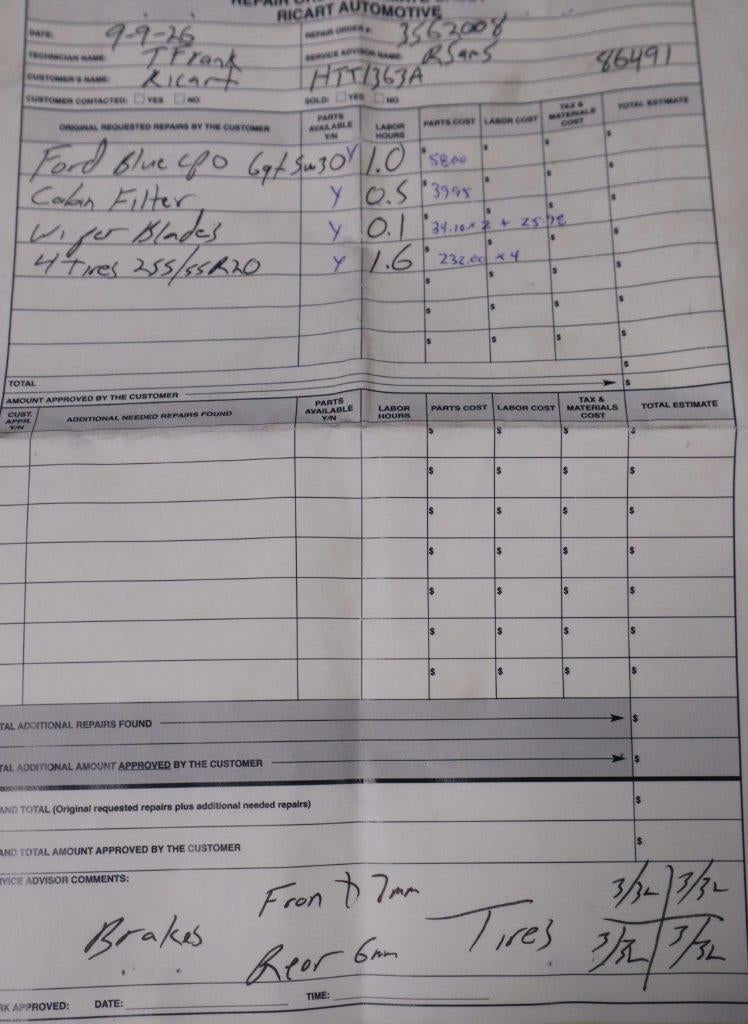 RICART AUTOMOTIVE
DATE: 9-9-26 REPAIR ORDER #: 3562008
TECHNICIAN NAME: TFrank SERVICE ADVISOR NAME: RSans 86491
CUSTOMER'S NAME: Ricart HTT1363A
CUSTOMER CONTACTED: YES NO SOLD: YES NO
ORIGINAL REQUESTED REPAIRS BY THE CUSTOMER PARTS AVAILABLE Y/N LABOR HOURS PARTS COST LABOR COST TAX & MATERIALS COST TOTAL ESTIMATE
Ford Blue CPO 6qt 5w30 Y 1.0 $5800 $ $ $
Cabin Filter Y 0.5 $3995 $ $ $
Wiper Blades Y 0.1 $34.10 x 2 + 25.72 $
4 Tires 255/55R20 Y 1.6 $232.00 x4 $ $ $
$ $ $ $
$ $ $ $
TOTAL $
AMOUNT APPROVED BY THE CUSTOMER $
CUST. APPR. Y/N ADDITIONAL NEEDED REPAIRS FOUND PARTS AVAILABLE Y/N LABOR HOURS PARTS COST LABOR COST TAX & MATERIALS COST TOTAL ESTIMATE
$ $ $ $
$ $ $ $
$ $ $ $
$ $ $ $
$ $ $ $
$ $ $ $
$ $ $ $
TAL ADDITIONAL REPAIRS FOUND $
TAL ADDITIONAL AMOUNT APPROVED BY THE CUSTOMER $
AND TOTAL (Original requested repairs plus additional needed repairs) $
AND TOTAL AMOUNT APPROVED BY THE CUSTOMER $
VICE ADVISOR COMMENTS:
Front 7mm 3/32 3/32
Brakes Tires
Rear 6mm 3/32 3/32
RK APPROVED: DATE: TIME: